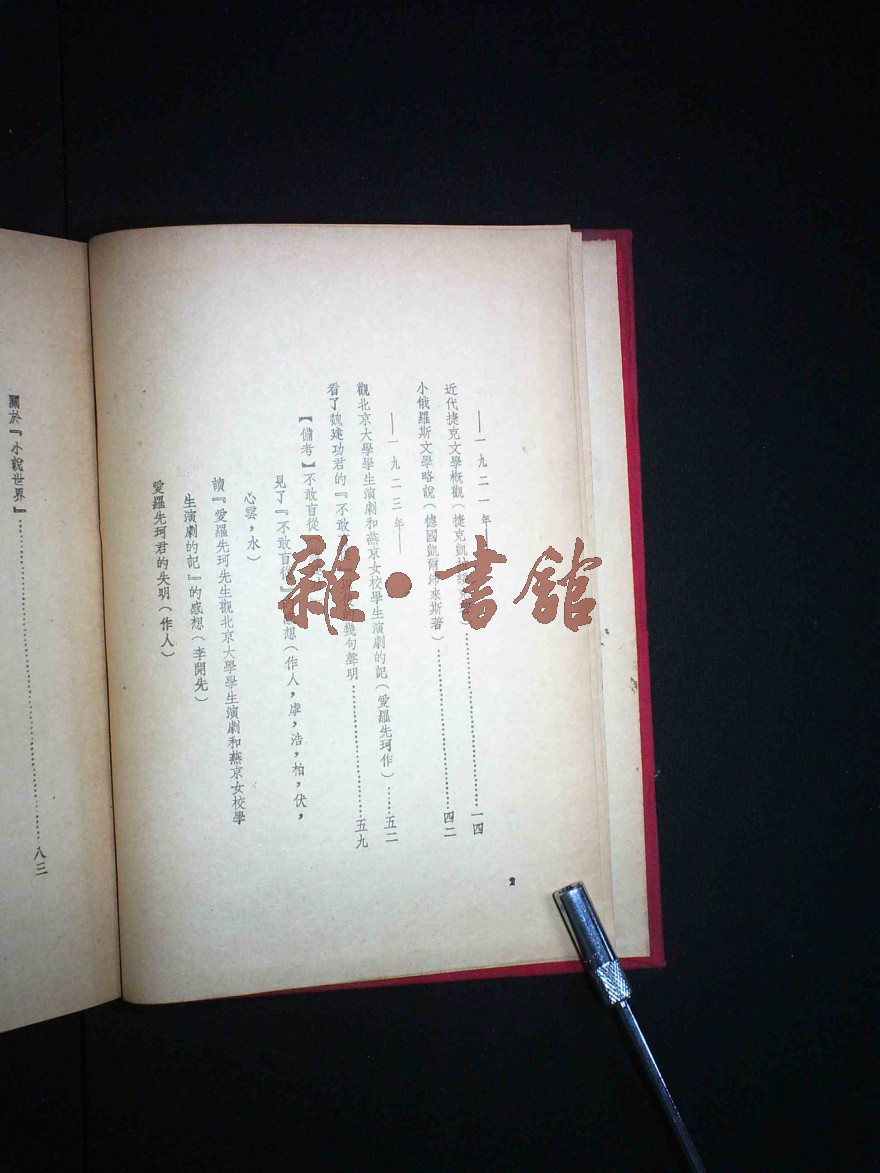 ——一九二一年——
近代捷克文學概觀（捷克凱拉綏克著）……一四
小俄羅斯文學略說（德國凱爾沛來斯著）……四二
——一九二三年——
觀北京大學學生演劇和燕京女校學生演劇的記（愛羅先珂作）……五二
看了魏建功君的『不敢盲從』以後的幾句聲明……五九
【備考】不敢盲從
見了『不敢盲從』的感想（作人，虖，浩，柏，伏，
心雲，水）
讀『愛羅先珂先生觀北京大學學生演劇和燕京女校學
生演劇的記』的感想（李開先）
愛羅先珂君的失明（作人）
2
關於『小說世界』……八三
雜·書館